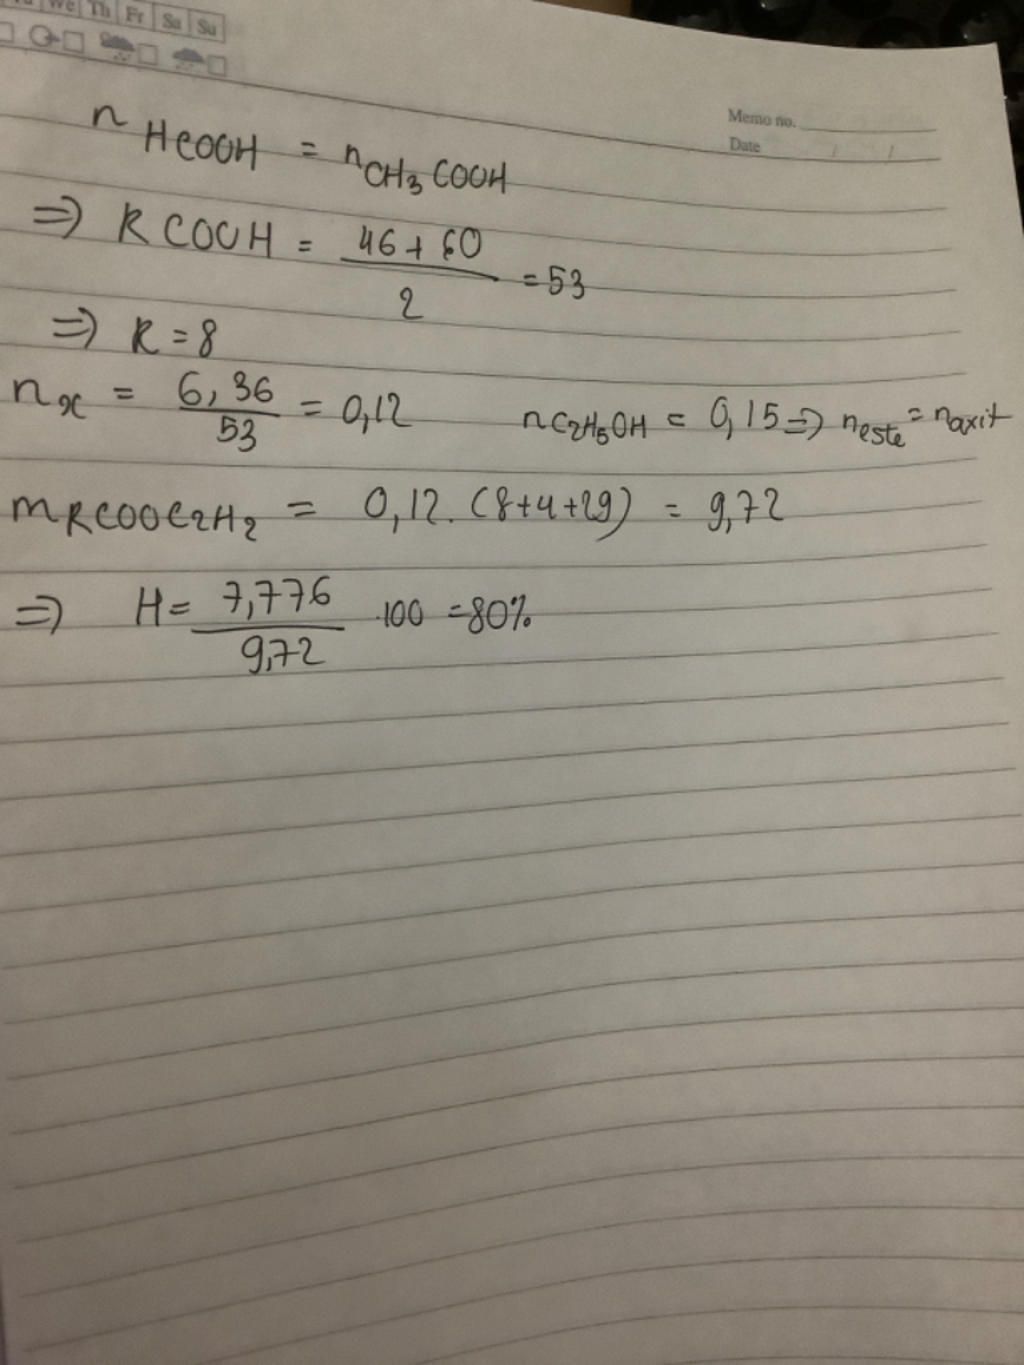 We Th Fr Sa Su
Memo no.
Date / /
n HCOOH = nCH3COOH
=> RCOOH = 46+60 / 2 = 53
=> R = 8
nx = 6,36 / 53 = 0,12 nC2H5OH = 0,15 => neste = naxit
mRCOOC2H2 = 0,12. (8+4+29) = 9,72
=> H = 7,776 / 9,72 .100 = 80%